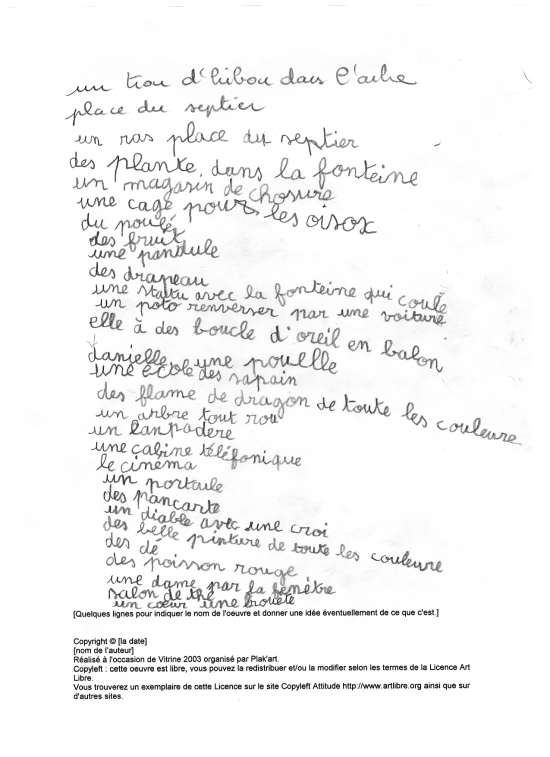 un trou d'hibou dans l'arbre
place du septier
un ras place du septier
des plante dans la fonteine
un magasin de chosure
une cage pour les oisox
du poulé
des fruit
une pandule
des drapeau
une statu avec la fonteine qui coule
un poto renverser par une voiture
elle à des boucle d'oreil en balon
danielle une pouelle
une école des sapain
des flame de dragon de toute les couleure
un arbre tout rou
un lanpadere
une cabine téléfonique
le cinéma
un portaule
des pancarte
un diable avec une croi
des belle pinture de toute les couleure
des dé
des poisson rouge
une dame par la fenêtre
salon de thé
un cœur une brouete
[Quelques lignes pour indiquer le nom de l'oeuvre et donner une idée éventuellement de ce que c'est.]
Copyright © [la date]
[nom de l'auteur]
Réalisé à l'occasion de Vitrine 2003 organisé par Plak'art.
Copyleft : cette oeuvre est libre, vous pouvez la redistribuer et/ou la modifier selon les termes de la Licence Art
Libre.
Vous trouverez un exemplaire de cette Licence sur le site Copyleft Attitude http://www.artlibre.org ainsi que sur
d'autres sites.